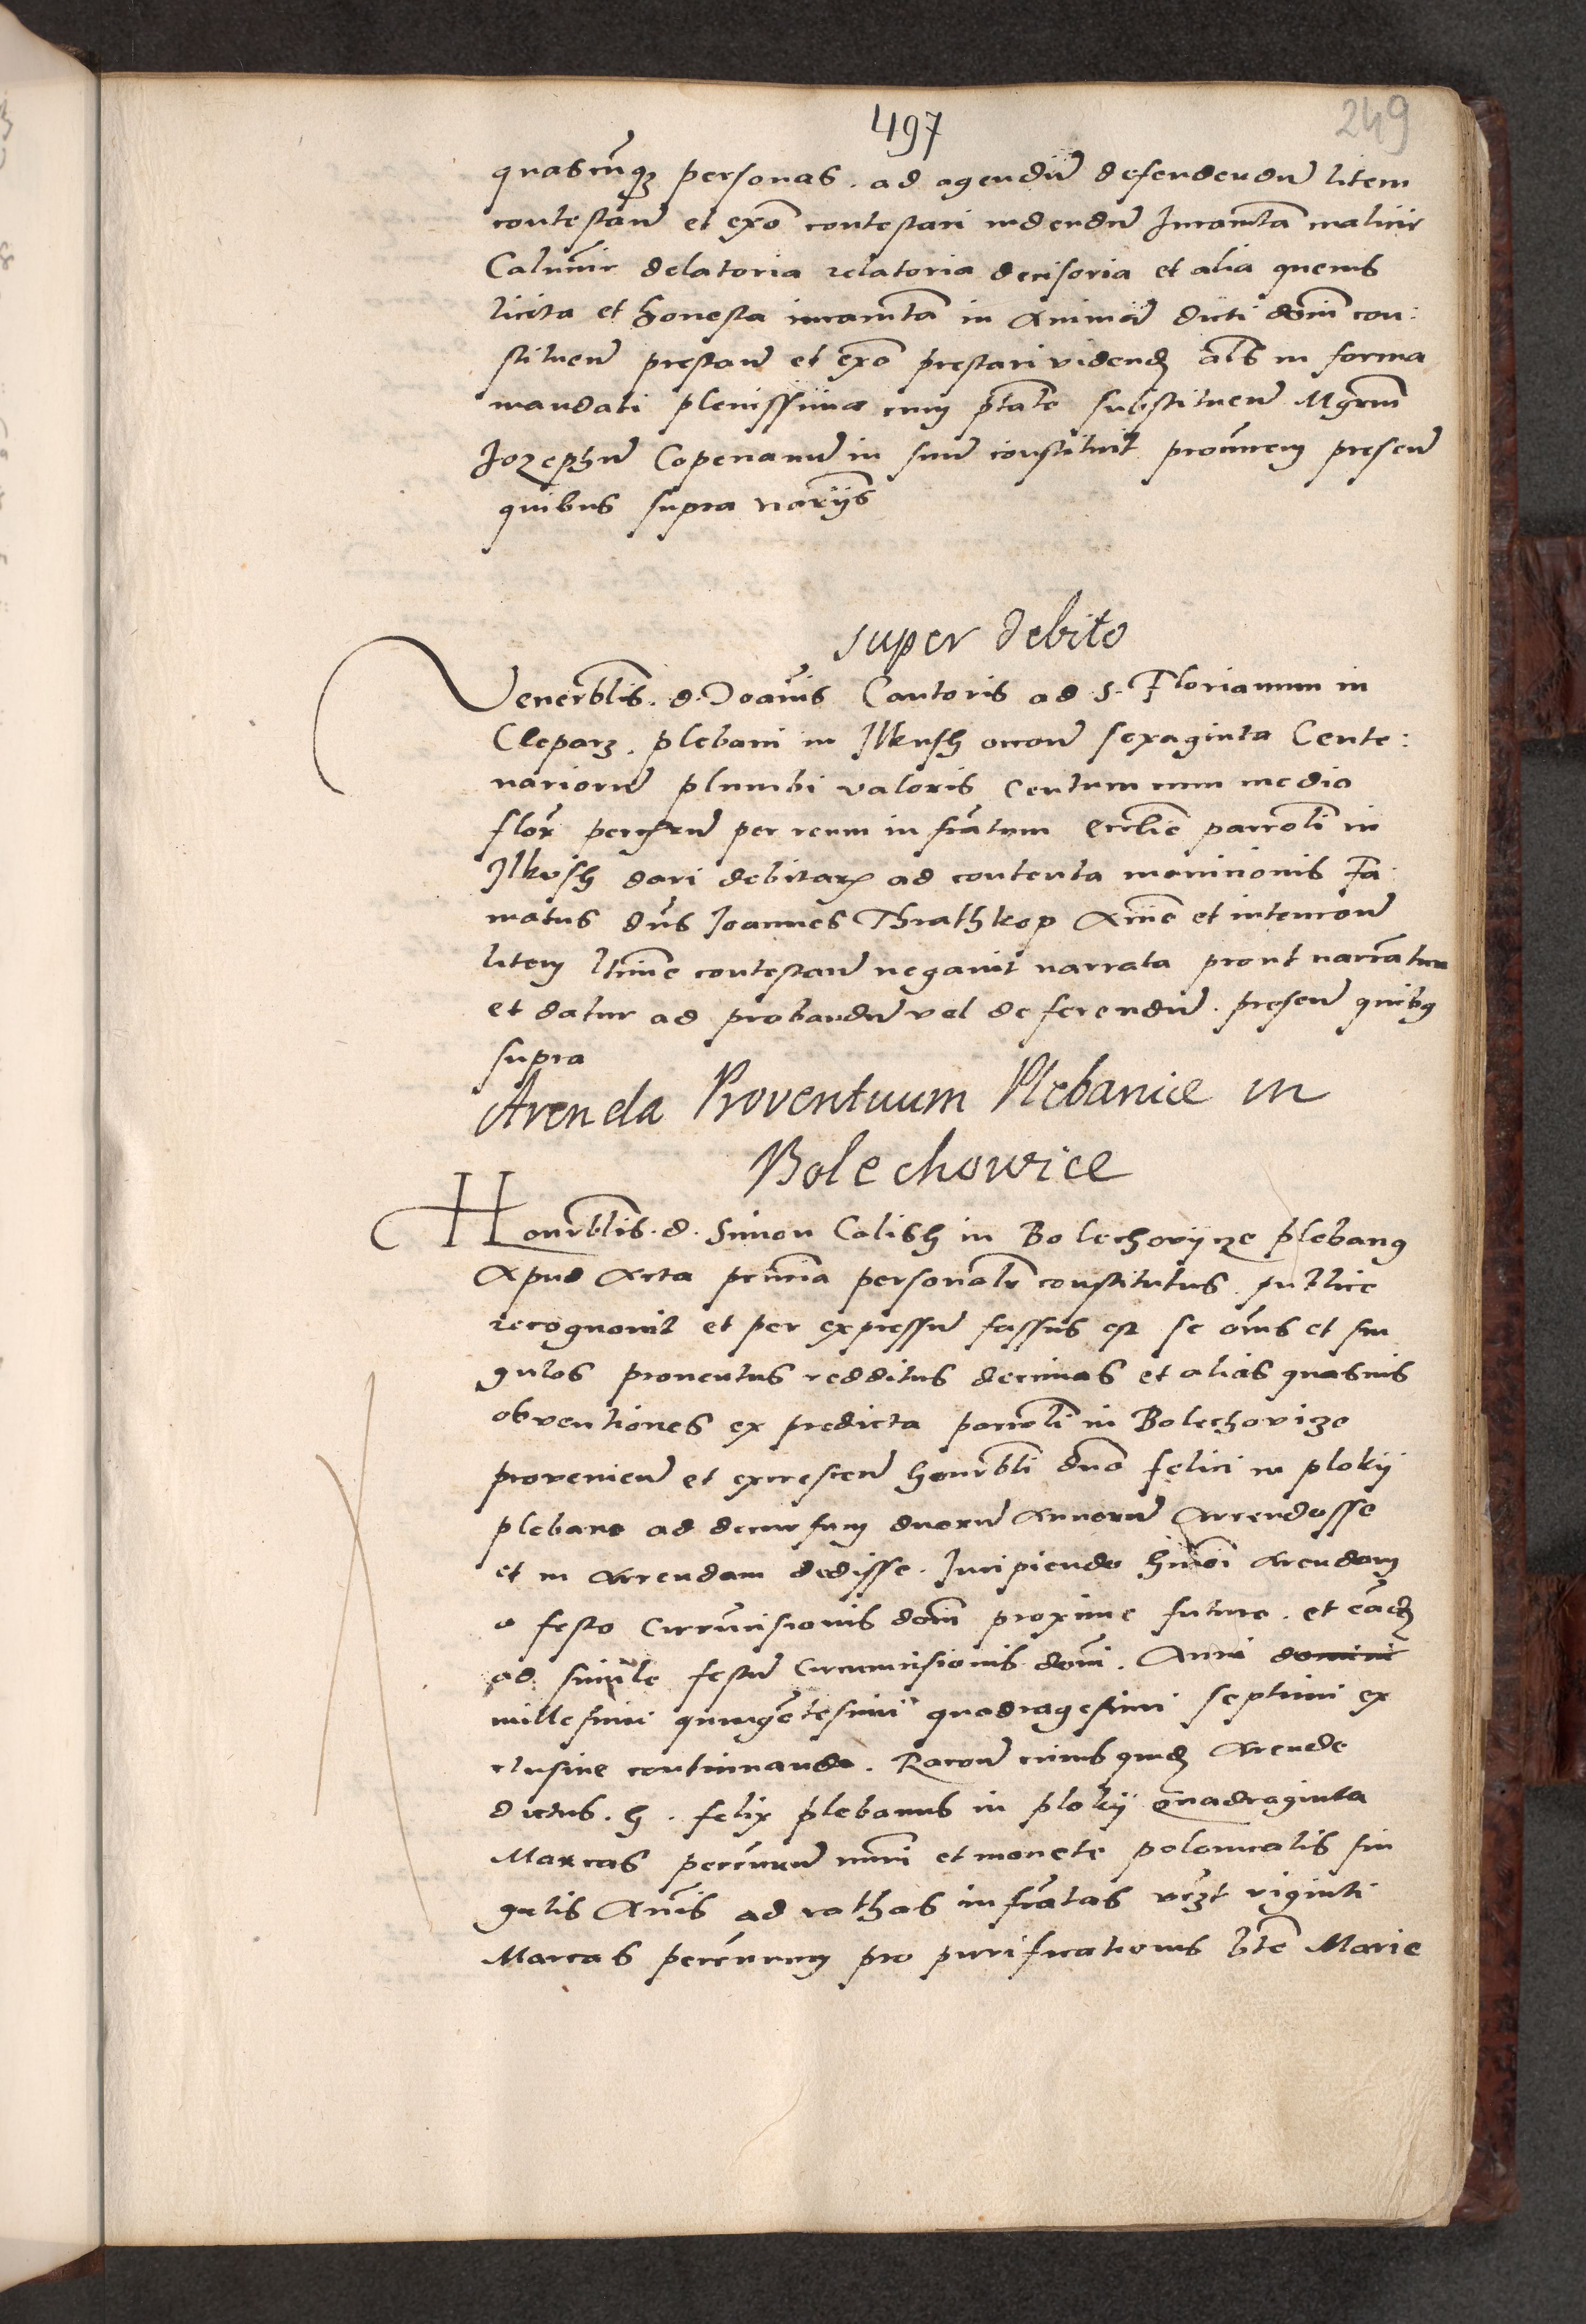 497
249
quascũqȝ personas. ad agendũ defendendũ litem
contestanđ et exõ contestari videndũ Juramtã malicie
Calumniẽ delatoria relatoria decisoria et alia quevis
licita et honesta iuramtã in animã dicti dõm con:
stituen̄ prestanđ et exõ prestari videnđ als in forma
mandati plenissima cum ptãte substituenđ Mgrm̃
Jozephũ Copenanũ in suũ constituit procũrem presen̄
quibus supra notariis
super debito
Venerblis. d. Joañis Cantoris ad S. Florianum in
Cleparz. plebani in Ilkush occone sexaginta Cente:
nariorũ plumbi valoris Centum cum medio
florẽ per reum infrãtum ecclie parrolĩ in
Ilkush dari debitarũ ad contenta monicionis Fa
matus dñs Joannes Thrathkop animo et intencone
litem ltime contestan̄ negavit narrata prout narrãtur
et datur ad probandũ vel deferendũ. presen̄ quibɋ
supra
Arenda Proventuum Plebaniæ in
Bolechowice
Honorblis. d. Simon Calish in Bolechovijcze plebanɋ
Apud Acta pñcia personalr̃ constitutus publice
recognovit et per expressũ fassus est se om̃s et sin
gulos proventus redditus decimas et alias quasvis
obventiones ex predicta parrolĩ in Bolechovize
provenien̄ et excrescen̄ honorblĩ dño felici in plokij
plebano ad decursum duorũ Annorũ Arrendasse
et in Arrendam dedisse. Incipiendo hmõi Arendam
a festo Circũcisionis dom̃ proxime futuro. et eãdȝ
ad simile festũ circumcisionis dom̃. Anni domini
millesimi quingẽtesimi quadragesimi septimi ex
clusive continuando. Racone cuius quidȝ Arende
dictus. h. felix plebanus in plokij Quadraginta
Marcas peccuniarũ num̃i et monete polonicalis sin
gulis Añis ad rathas infrãtas vcȝt viginti
Marcas peccuniarum pro purificationis btẽ Marie